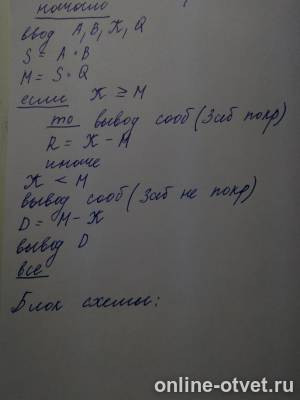 начало
ввод A, B, K, Q
S = A · B
M = S · Q
если K ≥ M
то вывод сооб (Заб покр)
R = K - M
иначе
K < M
вывод сооб (Заб не покр)
D = M - K
вывод D
все
Блок схемы:
online-otvet.ru